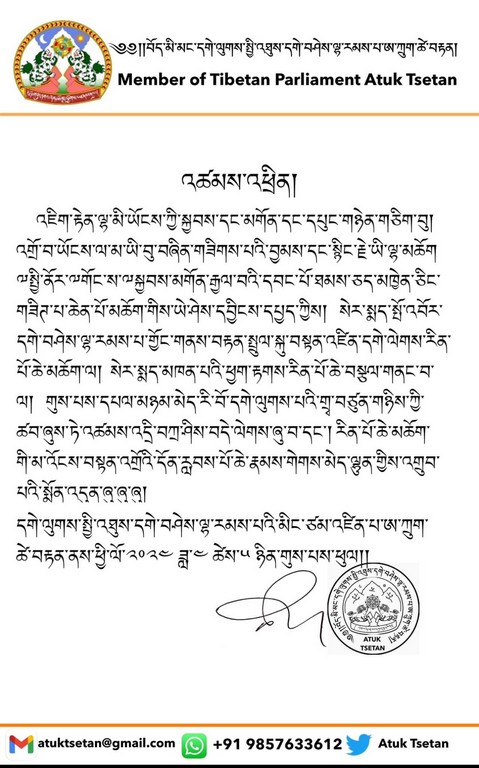 ༄༅།།བོད་མི་མང་དགེ་ལུགས་སྤྱི་འཐུས་དགེ་བཤེས་ལྷ་རམས་པ་ཨ་ཀྲུག་ཚེ་བརྟན།
Member of Tibetan Parliament Atuk Tsetan
འཚམས་འཕྲིན།
འཇིག་རྟེན་ལྷ་མི་ཡོངས་ཀྱི་སྐྱབས་དང་མགོན་དང་དཔུང་གཉེན་གཅིག་བུ།
འགྲོ་བ་ཡོངས་ལ་མ་ཡི་བུ་བཞིན་གཟིགས་པའི་བྱམས་དང་སྙིང་རྗེ་ཡི་ལྷ་མཆོག
༸སྤྱི་ནོར་༸གོང་ས་༸སྐྱབས་མགོན་རྒྱལ་བའི་དབང་པོ་ཐམས་ཅད་མཁྱེན་ཅིང་
གཟིཊ་པ་ཆེན་པོ་མཆོག་གིས་ཡེ་ཤེས་དབྱིངས་དཔྱད་ཀྱིས། སེར་སྨད་སྤོ་འབོར་
དགེ་བཤེས་ལྷ་རམས་པ་གྱོང་གནས་བརྟན་སྤྲུལ་སྐུ་བསྟན་འཛིན་དགེ་ལེགས་རིན་
པོ་ཆེ་མཆོག་ལ། སེར་སྨད་མཁན་པའི་ཕྱག་རྟགས་རིན་པོ་ཆེ་བསྩལ་གནང་བ་
ལ། གུས་པས་དཔལ་མཉམ་མེད་རི་བོ་དགེ་ལུགས་པའི་གྲྭ་བཙུན་གཉིས་ཀྱི་
ཚབ་ཞུས་ཏེ་འཚམས་འདྲི་བཀྲ་ཤིས་བདེ་ལེགས་ཞུ་བ་དང་། རིན་པོ་ཆེ་མཆོག་
གི་མ་འོངས་བསྟན་འགྲོའི་དོན་རླབས་པོ་ཆེ་རྣམས་གེགས་མེད་ལྷུན་གྱིས་འགྲུབ་
པའི་སྨོན་འདུན་ཞུ་ཞུ་ཞུ།
དགེ་ལུགས་སྤྱི་འཐུས་དགེ་བཤེས་ལྷ་རམས་པའི་མིང་ཙམ་འཛིན་པ་ཨ་ཀྲུག་
ཚེ་བརྟན་ནས་ཕྱི་ལོ་
ཚེས་༥ ཉིན་གུས་པས་ཕུལ།།
ATUK
TSETAN
atuktsetan@gmail.com +91 9857633612 Atuk Tsetan